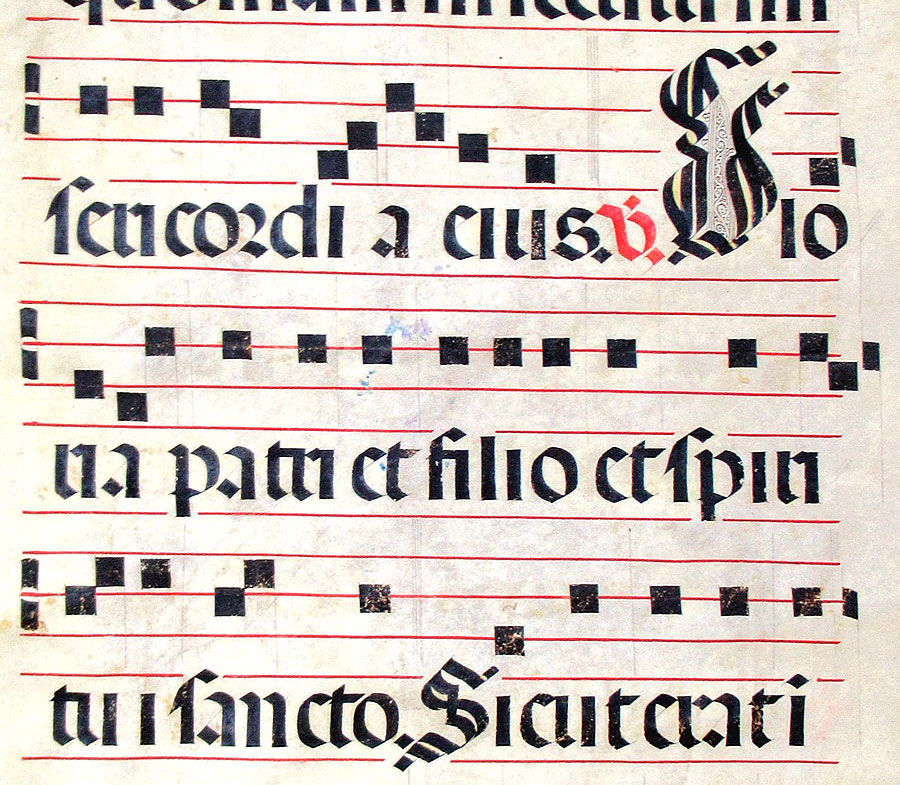 sericordi a eius. V. Glo
ria patri et filio et spiri
tu i sancto. Sicut erat i